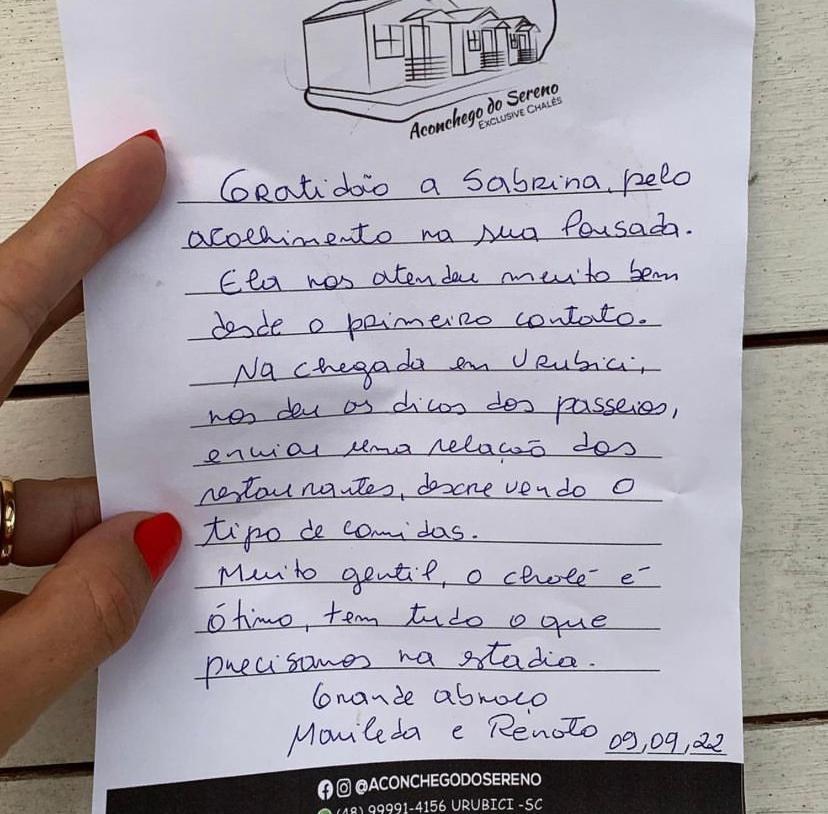 Aconchego do Sereno
EXCLUSIVE CHALÉS
Gratidão a Sabrina, pelo
acolhimento na sua Pousada.
Ela nos atendeu muito bem
desde o primeiro contato.
Na chegada em Urubici,
nos deu as dicas dos passeios,
enviou uma relação dos
restaurantes, descrevendo o
tipo de comidas.
Muito gentil, o chalé é
ótimo, tem tudo o que
precisamos na estadia.
Grande abraço
Marileda e Renato 09,09,22
@ACONCHEGODOSERENO
(48) 99991-4156 URUBICI -SC